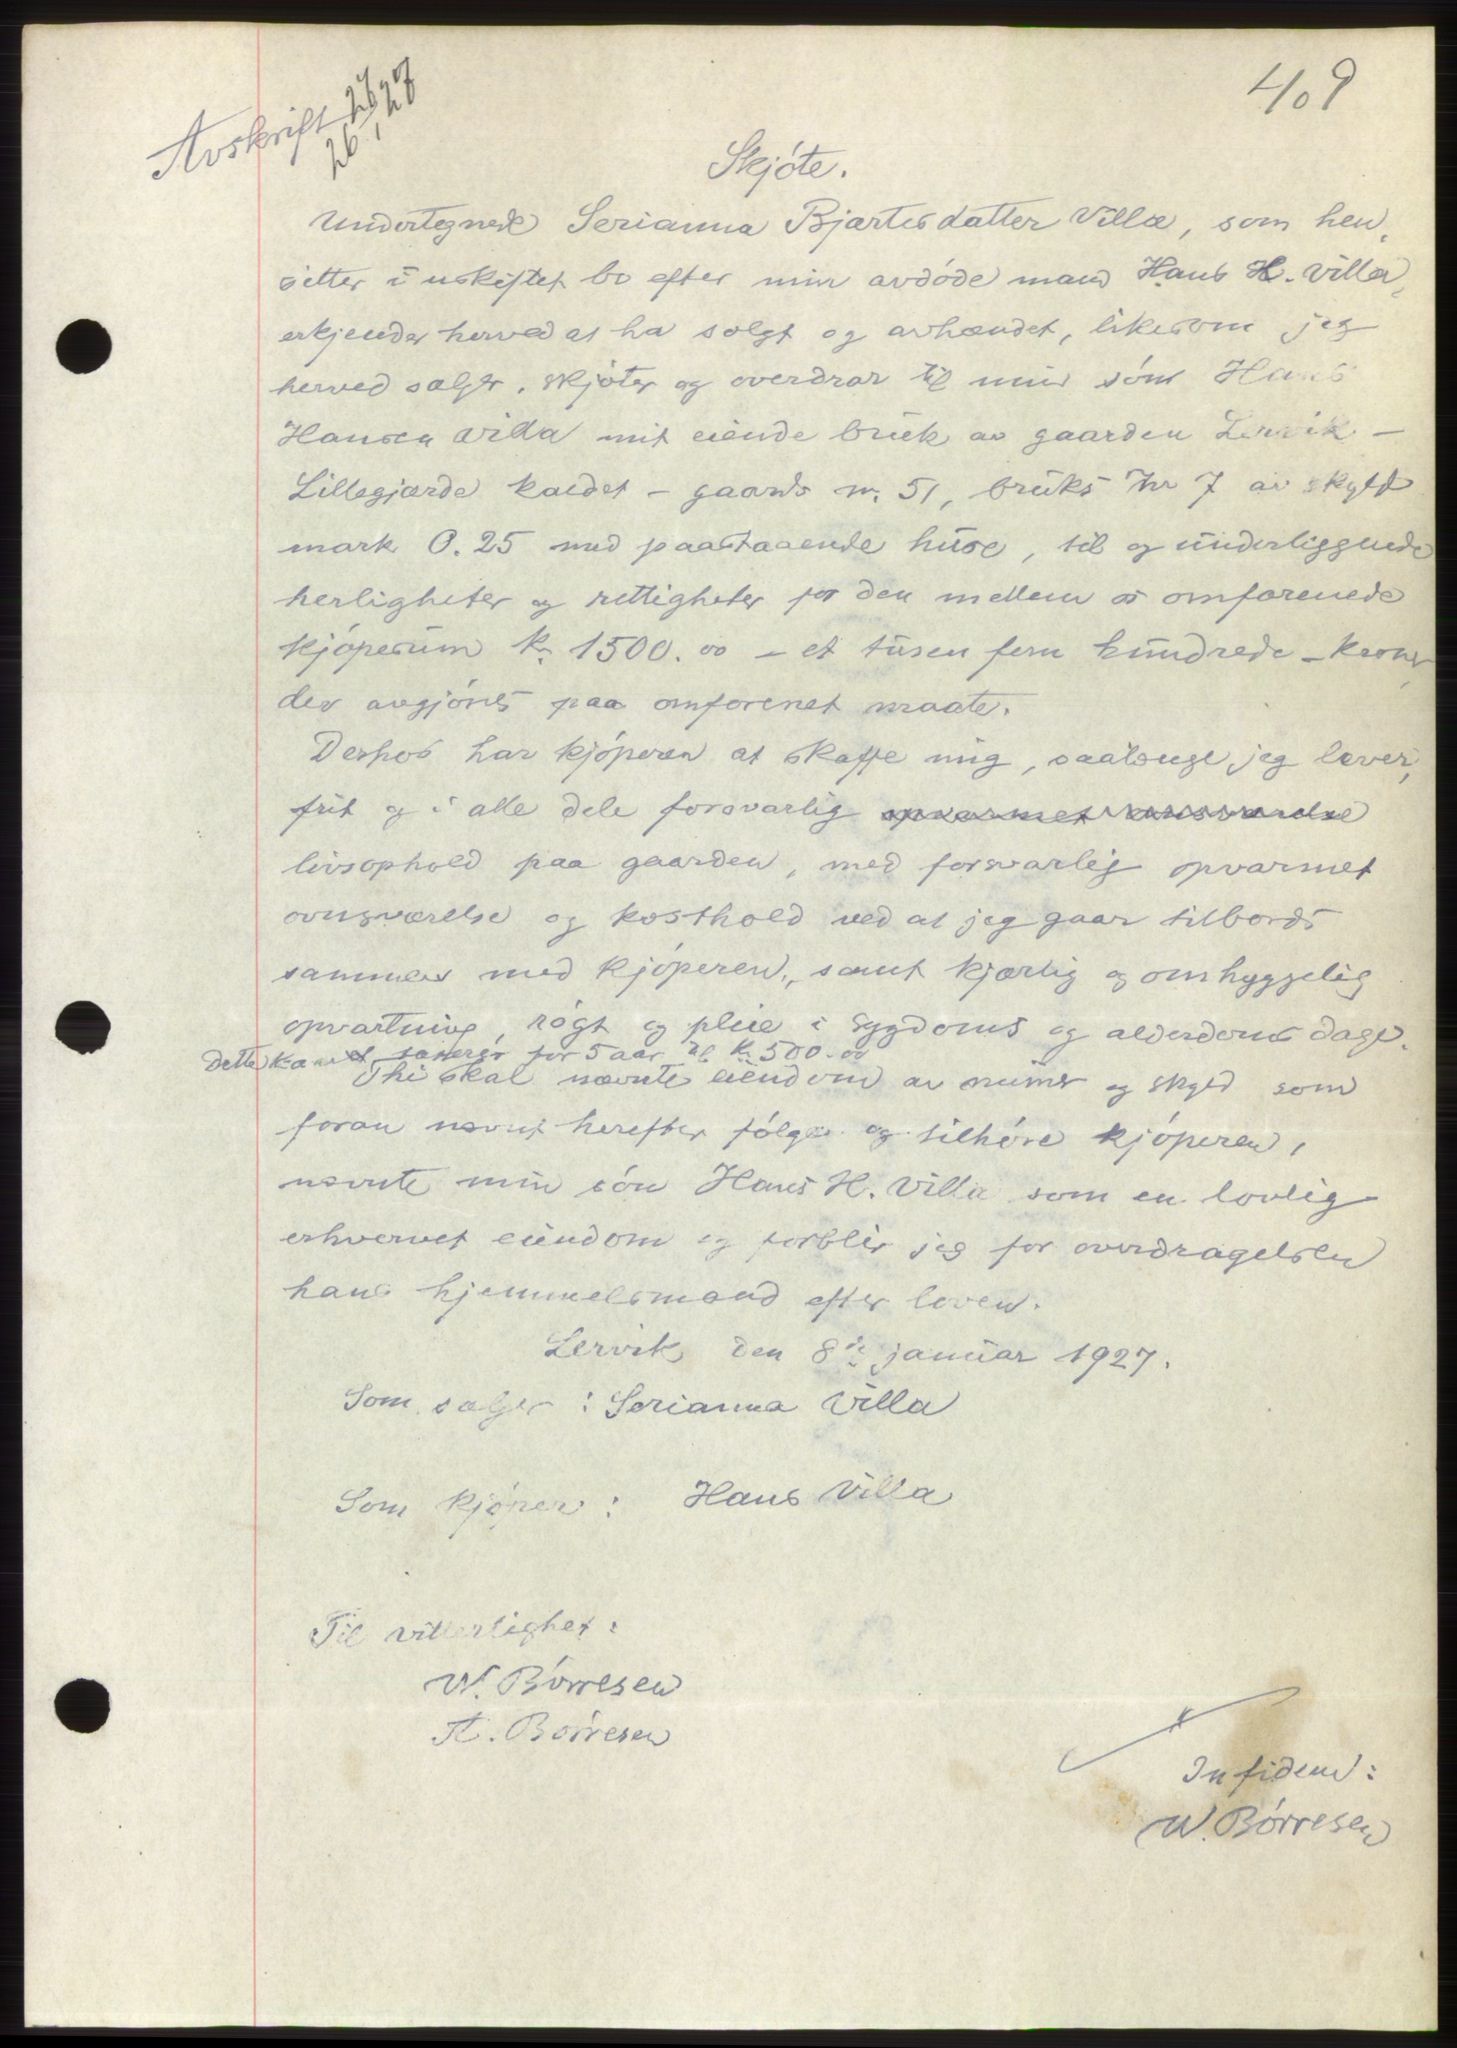 409
Avskrift
26
Skjóte.
Undertegnede Serianna Bjartesdatter Villa, som hen,
sitter i uskiftet bo efter min avdóde mand Hans H. Villa,
erkjender herved at ha solgt og avhændet, likesom jeg
herved sælger, skjóter og overdrar til min són Hans
Hansen Villa mit eiende bruk av gaarden Lervik –
Lillegjærde kaldet – gaards nr. 51, bruks nr 7 av skyld
mark 0.25 med paastaaende huse, til og underliggende
herligheter og rettigheter for den mellem os omforenede
kjópesum kr. 1500.00 – et tusen fem hundrede – kroner
der avgjóres paa omforenet maate.
Desfos har kjóperen at skaffe mig, saalenge jeg lever,
frit og i alle dele forsvarlig
livsophold paa gaarden, med forsvarlig opvarmet
ovnsværelse og kosthold ved at jeg gaar tilbords
sammen med kjóperen, samt kjærlig og omhyggelig
opvartning, rógt og pleie i sygdoms og alderdoms dage.
Dette for 5 aar til kr 500.00
Thi skal nævnte eiendom av numer og skyld som
foran nævnt herefter fólge og tilhóre kjóperen,
nævnte min són Hans H. Villa som en lovlig
erhvervet eiendom og forblir jeg for overdragelsen
hans hjemmelsmand efter loven.
Lervik den 8de januar 1927.
Som sælger: Serianna Villa
Som kjóper: Hans Villa
Til vitterlighet:
W. Bórresen
A. Bórresen
In fidem:
W. Bórresen